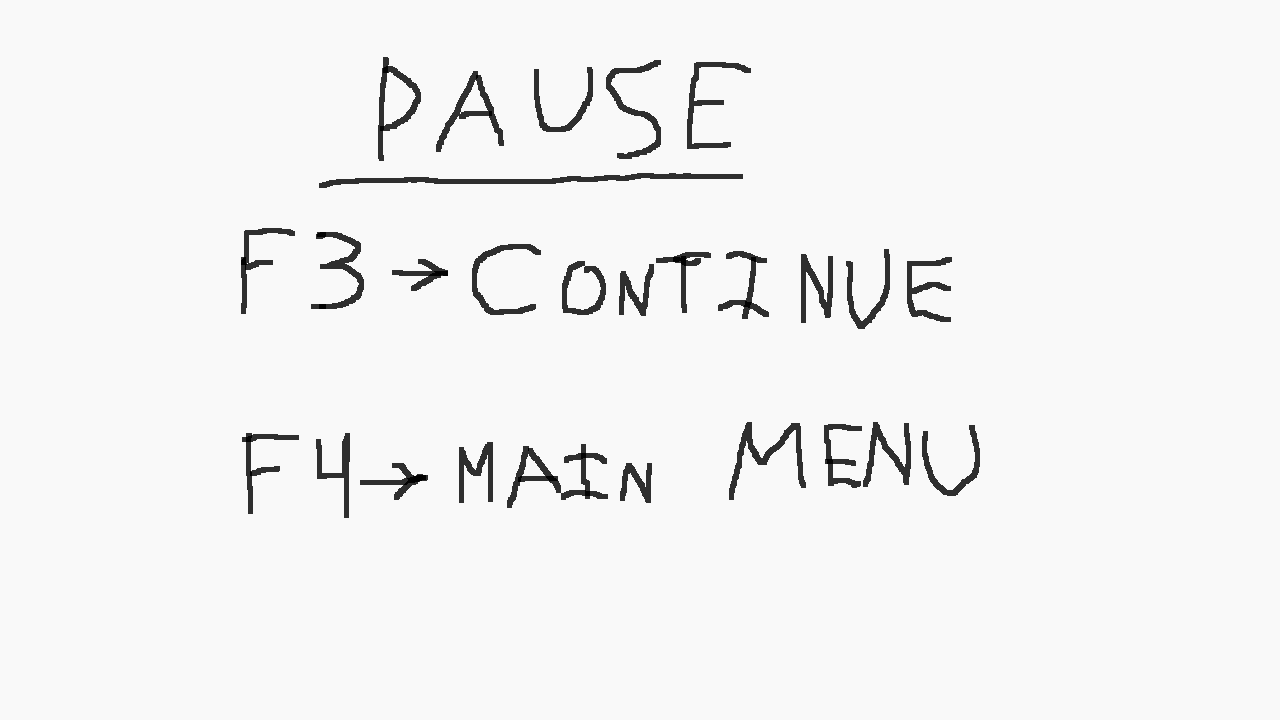 PAUSE
F3 → CONTINUE
F4 → MAIN MENU